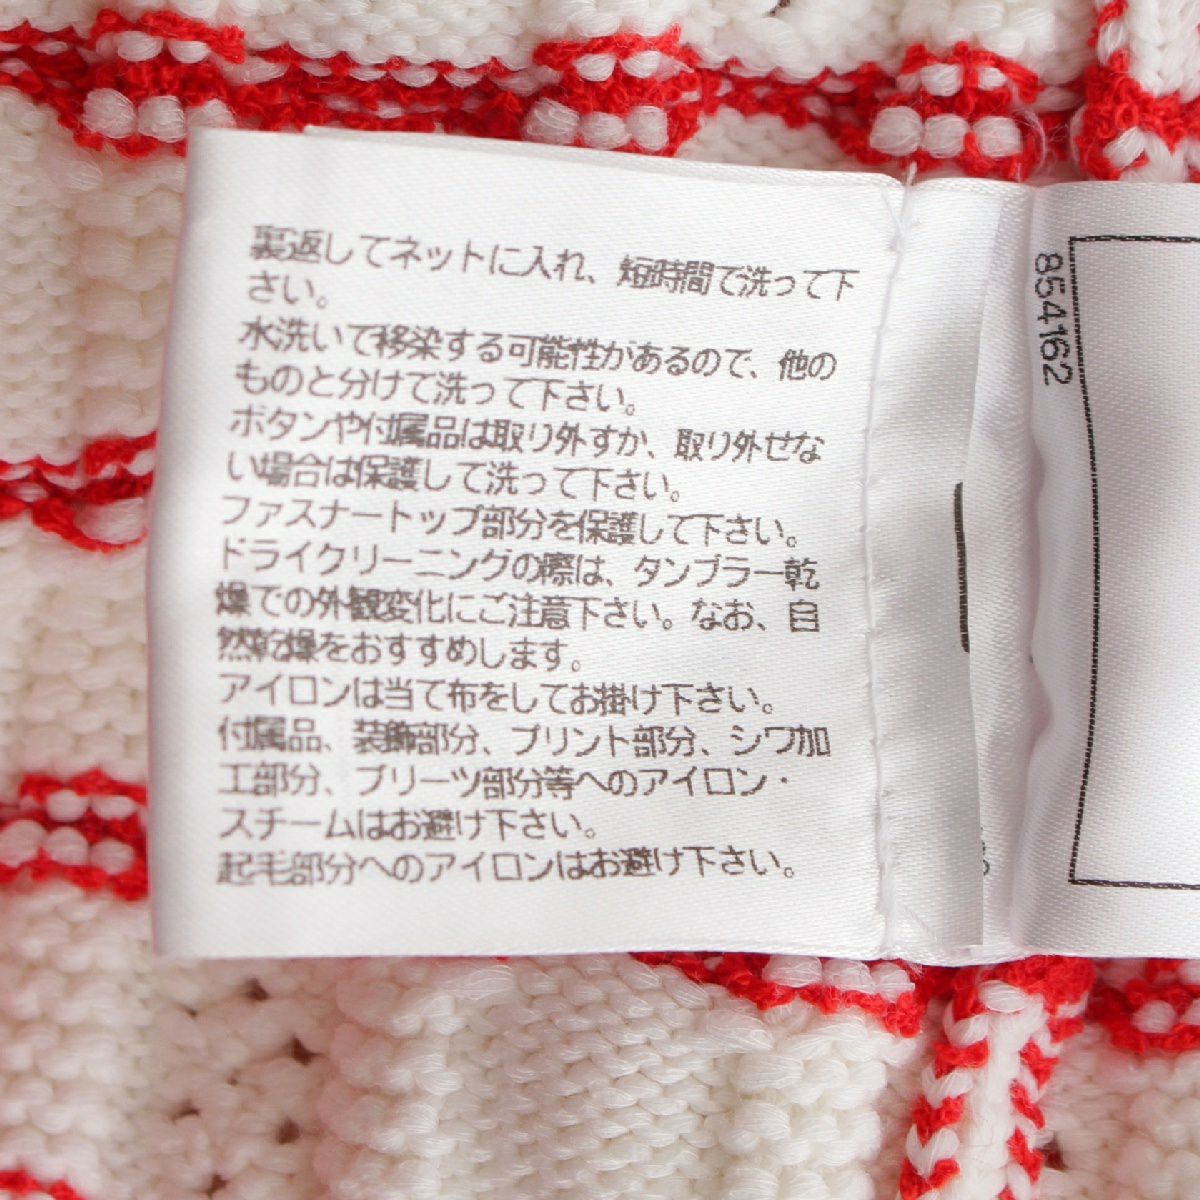 裏返してネットに入れ、短時間で洗って下
さい。
水洗いで移染する可能性があるので、他の
ものと分けて洗って下さい。
ボタンや付属品は取り外すか、取り外せな
い場合は保護して洗って下さい。
ファスナートップ部分を保護して下さい。
ドライクリーニングの際は、タンブラー乾
燥での外観変化にご注意下さい。なお、自
然乾燥をおすすめします。
アイロンは当て布をしてお掛け下さい。
付属品、装飾部分、プリント部分、シワ加
工部分、プリーツ部分等へのアイロン・
スチームはお避け下さい。
起毛部分へのアイロンはお避け下さい。
854162